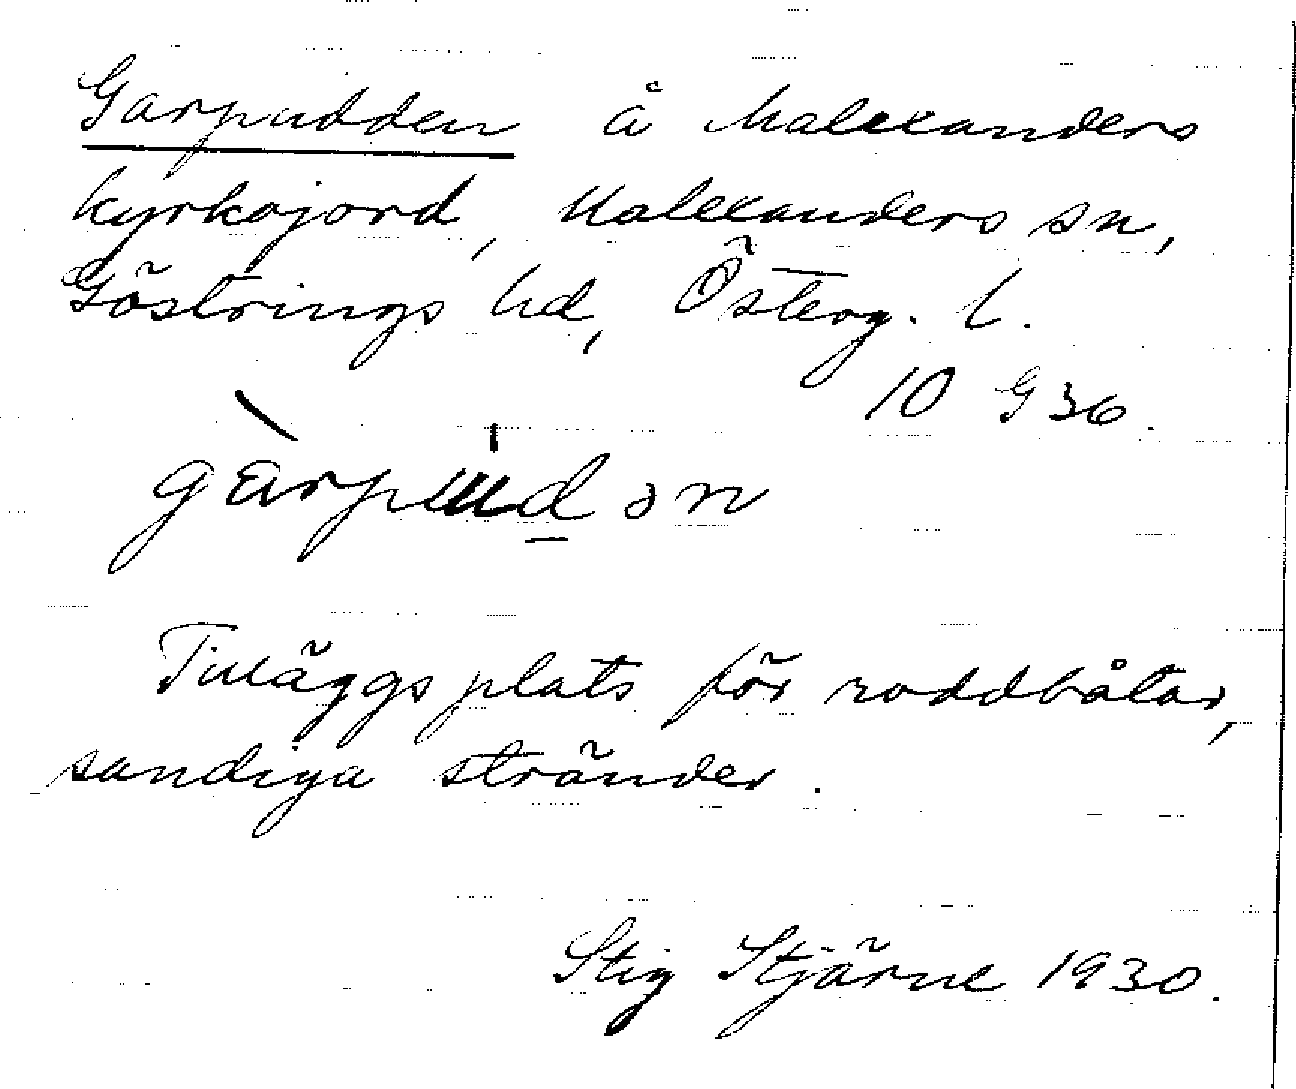 Garpudden å Malexanders
kyrkojord, Malexanders sn,
Göstrings hd, Österg. l.
10 G 36.
gàrpudən
Tilläggsplats för roddbåtar,
sandiga stränder.
Stig Stjärne 1930.